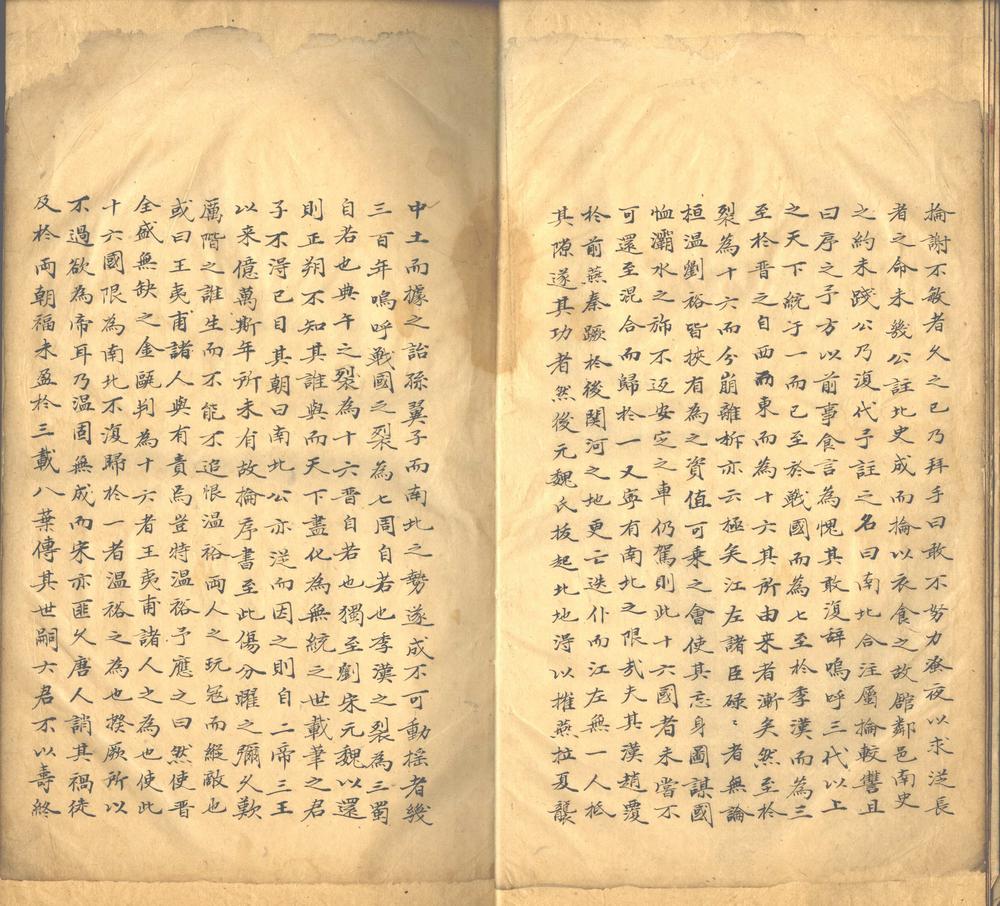 掄謝不敏者久之已乃拜手曰敢不努力夙夜以求從長
者之命未幾公註北史成而掄以衣食之故館鄰邑南史
之約未踐公乃復代予註之名曰南北合注屬掄較讐且
曰序之予方以前事食言為愧其敢復辭嗚呼三代以上
之天下統于一而已至於戰國而為七至於季漢而為三
至於晉之自西而東而為十六其所由来者漸矣然至於
裂為十六而分崩離析亦云極矣江左諸臣碌〻者無論
桓温劉裕皆挾有為之資值可乘之會使其忘身圖謀國
恤灞水之斾不迈安定之車仍駕則此十六國者未嘗不
可還至混合而歸於一又寧有南北之限㢤夫其漢趙覆
於前燕秦蹶於後関河之地更亡迭仆而江左無一人抵
其隙遂其功者然後元魏氏拔起北地淂以摧燕拉夏襲
中土而據之詒孫翼子而南北之勢遂成不可動摇者幾
三百年嗚呼戰國之裂為七周自若也季漢之裂為三蜀
自若也典午之裂為十六晉自若也獨至劉宋元魏以還
則正朔不知其誰與而天下盡化為無統之世載筆之君
子不淂已目其朝曰南北公亦從而因之則自二帝三王
以来億萬斯年所未有故掄序書至此傷分曜之彌久歎
厲階之誰生而不能不追恨温裕兩人之玩宼而縱敵也
或曰王夷甫諸人與有責焉豈特温裕予應之曰然使晉
全盛無缺之金甌判為十六者王夷甫諸人之為也使此
十六國限為南北不復歸於一者温裕之為也揆厥所以
不過欲為帝耳乃温固無成而宋亦匪乆唐人誚其禍徒
及於兩朝福未盈於三載八葉傳其世嗣六君不以壽終